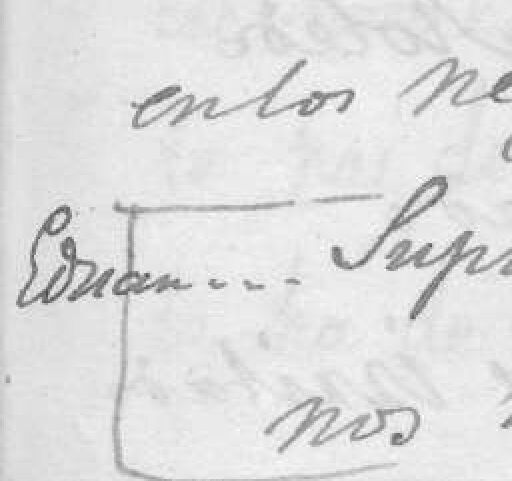 en los ne
Eduan.... Supr
nos